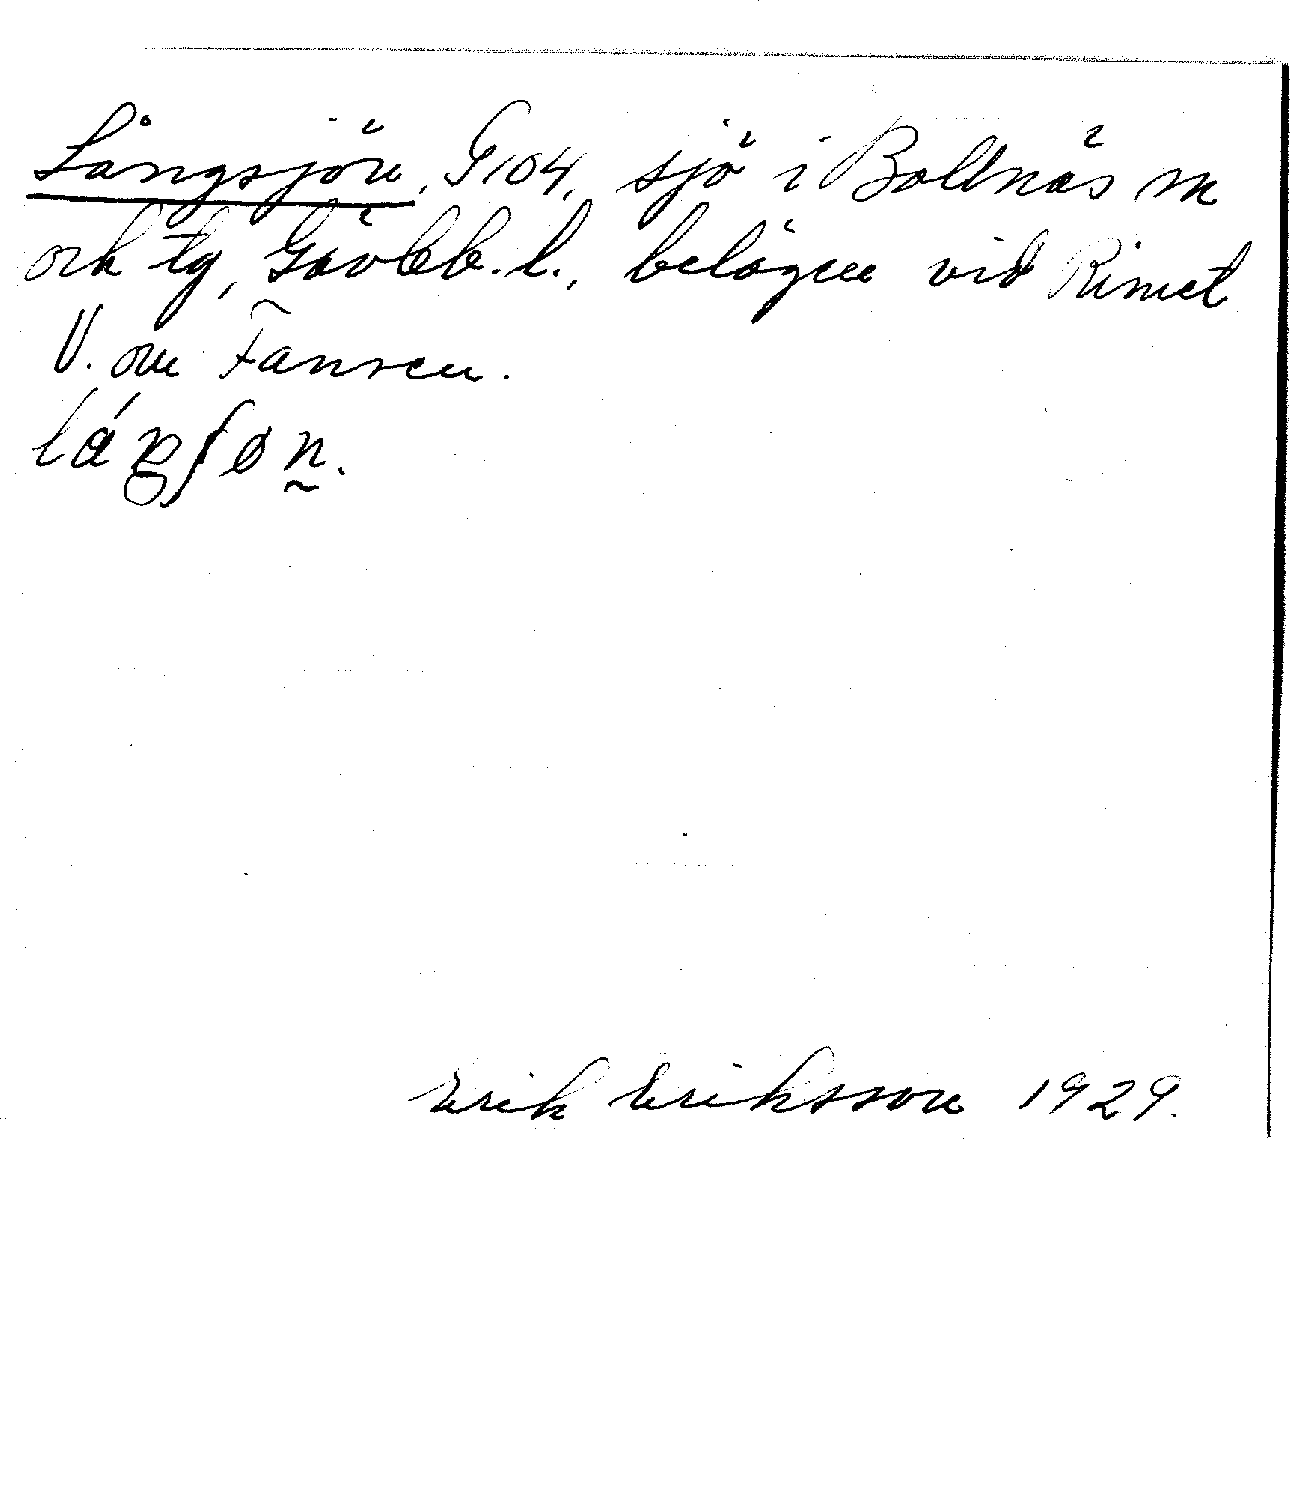 Långsjön, G 104, sjö i Bollnäs sn
och tg, Gävleb. l., belägen vid Rimet
V. om Fansen.
láŋʃøn.
Erik Eriksson 1929.